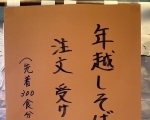 年越しそば
注文 受付
(先着300食分